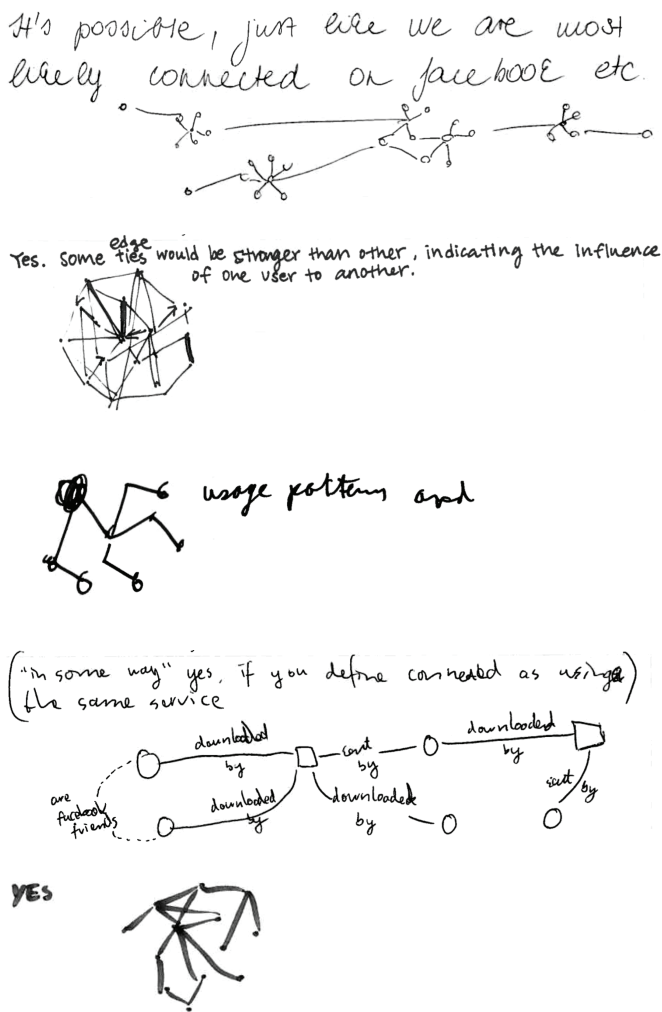 It's possible, just like we are most
likely connected on facebook etc.
edge
Yes. Some ties would be stronger than other, indicating the influence
of one user to another.
usage patterns and
("in some way" yes, if you define connected as using
the same service)
downloaded
by
sent
by
downloaded
by
are
facebook
friends
downloaded
by
downloaded
by
sent
by
YES